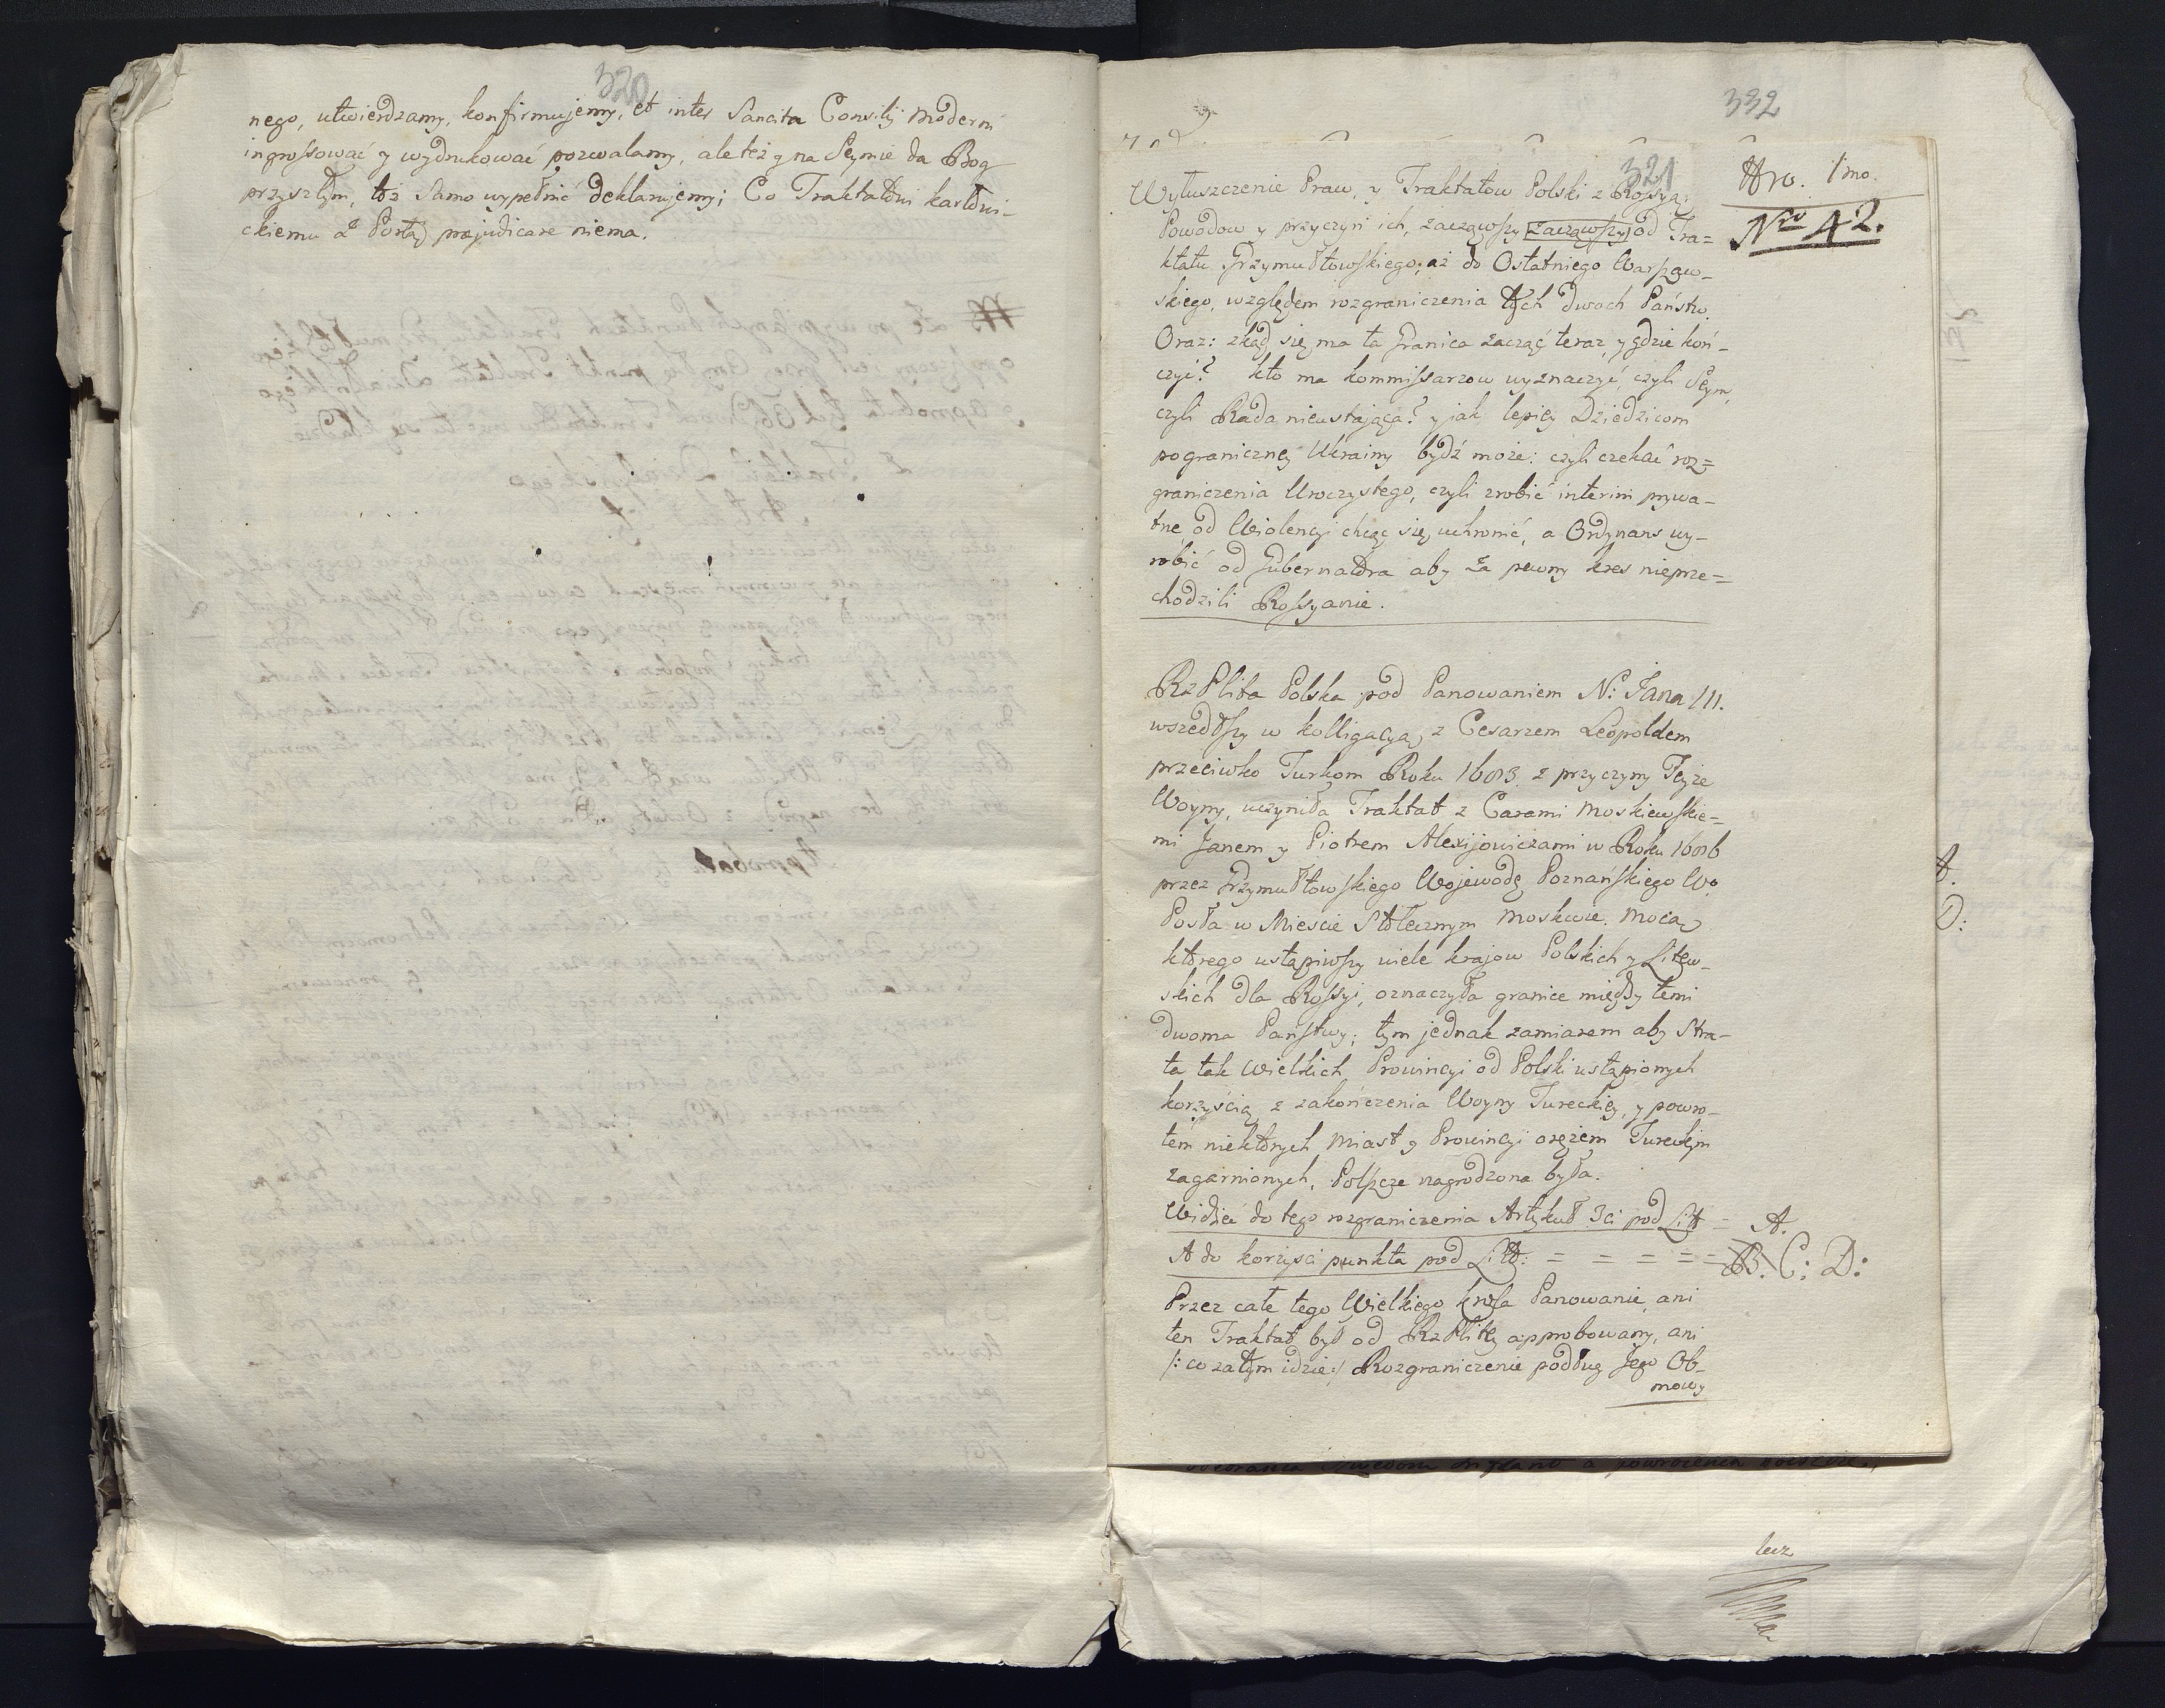 320
nego, utwierdzamy, konfirmujemy, et inter Sancita Consilij moderni
ingrossować y wydrukować pozwalamy, ale też y na Seymie da Bog
przyszłym, toż Samo wypełnić deklarujemy; Co Traktatowi karłowi-
ckiemu z Portą præjudicare niema.
332
321
Nro. 1mo.
Nro 42.
Wyłuszczenie Praw, y Traktatow Polski z Rossyą;
Powodow y przyczyn ich, zacząwszy zacząwszy od Tra=
ktatu Grzymułtowskiego; aż do Ostatniego Warszaw-
skiego, względem rozgraniczenia tych dwoch Państw.
Oraz: zkąd się ma ta Granica zacząć teraz, y gdzie koń-
czyć? kto ma kommissarzow wyznaczyć, czyli Seym,
czyli Rada nieustająca? y jak lepiey Dziedzicom
pograniczney Ukrainy bydź może: czyli czekać roz=
graniczenia Uroczystego, czyli zrobić interim prywa-
tne, od Wiolencyi chcąc się uchronić, a Ordynans wy-
robić od Gubernatora aby za pewny kres nieprze=
chodzili Rossyanie.
RzPlita Polska pod Panowaniem N: Jana III.
wszedłszy w kolligacyą z Cesarzem Leopoldem
przeciwko Turkom Roku 1683. z przyczyny Teyże
Woyny, uczyniła Traktat z Carami Moskiewskie=
mi Janem y Piotrem Alexijowiczami w Roku 1686
przez Grzymułtowskiego Wojewodę Poznańskiego W.
Posła w Mieście Stołecznym Moskwie. Mocą
ktorego ustąpiwszy wiele krajow Polskich y Litew-
skich dla Rossyi, oznaczyła granice między temi
dwoma Państwy; tym jednak zamiarem aby Stra-
ta tak Wielkich Prowincyi od Polski ustąpionych
korzyścią z zakończenia Woyny Tureckiey, y powro-
tem niektorych Miast y Prowincyi orężem Tureckim
zagarnionych, Polszcze nagrodzona była.
Widzieć do tego rozgraniczenia Artykuł 3ci pod Litt = A.
A do korzyści punkta pod Litt: = = = = = B. C: D:
Przez całe tego Wielkiego krola Panowanie, ani
ten Traktat był od RzPlitey approbowany, ani
/: co zatym idzie :/ Rozgraniczenie podług Jego Ob-
mowy
A.
D:
lecz